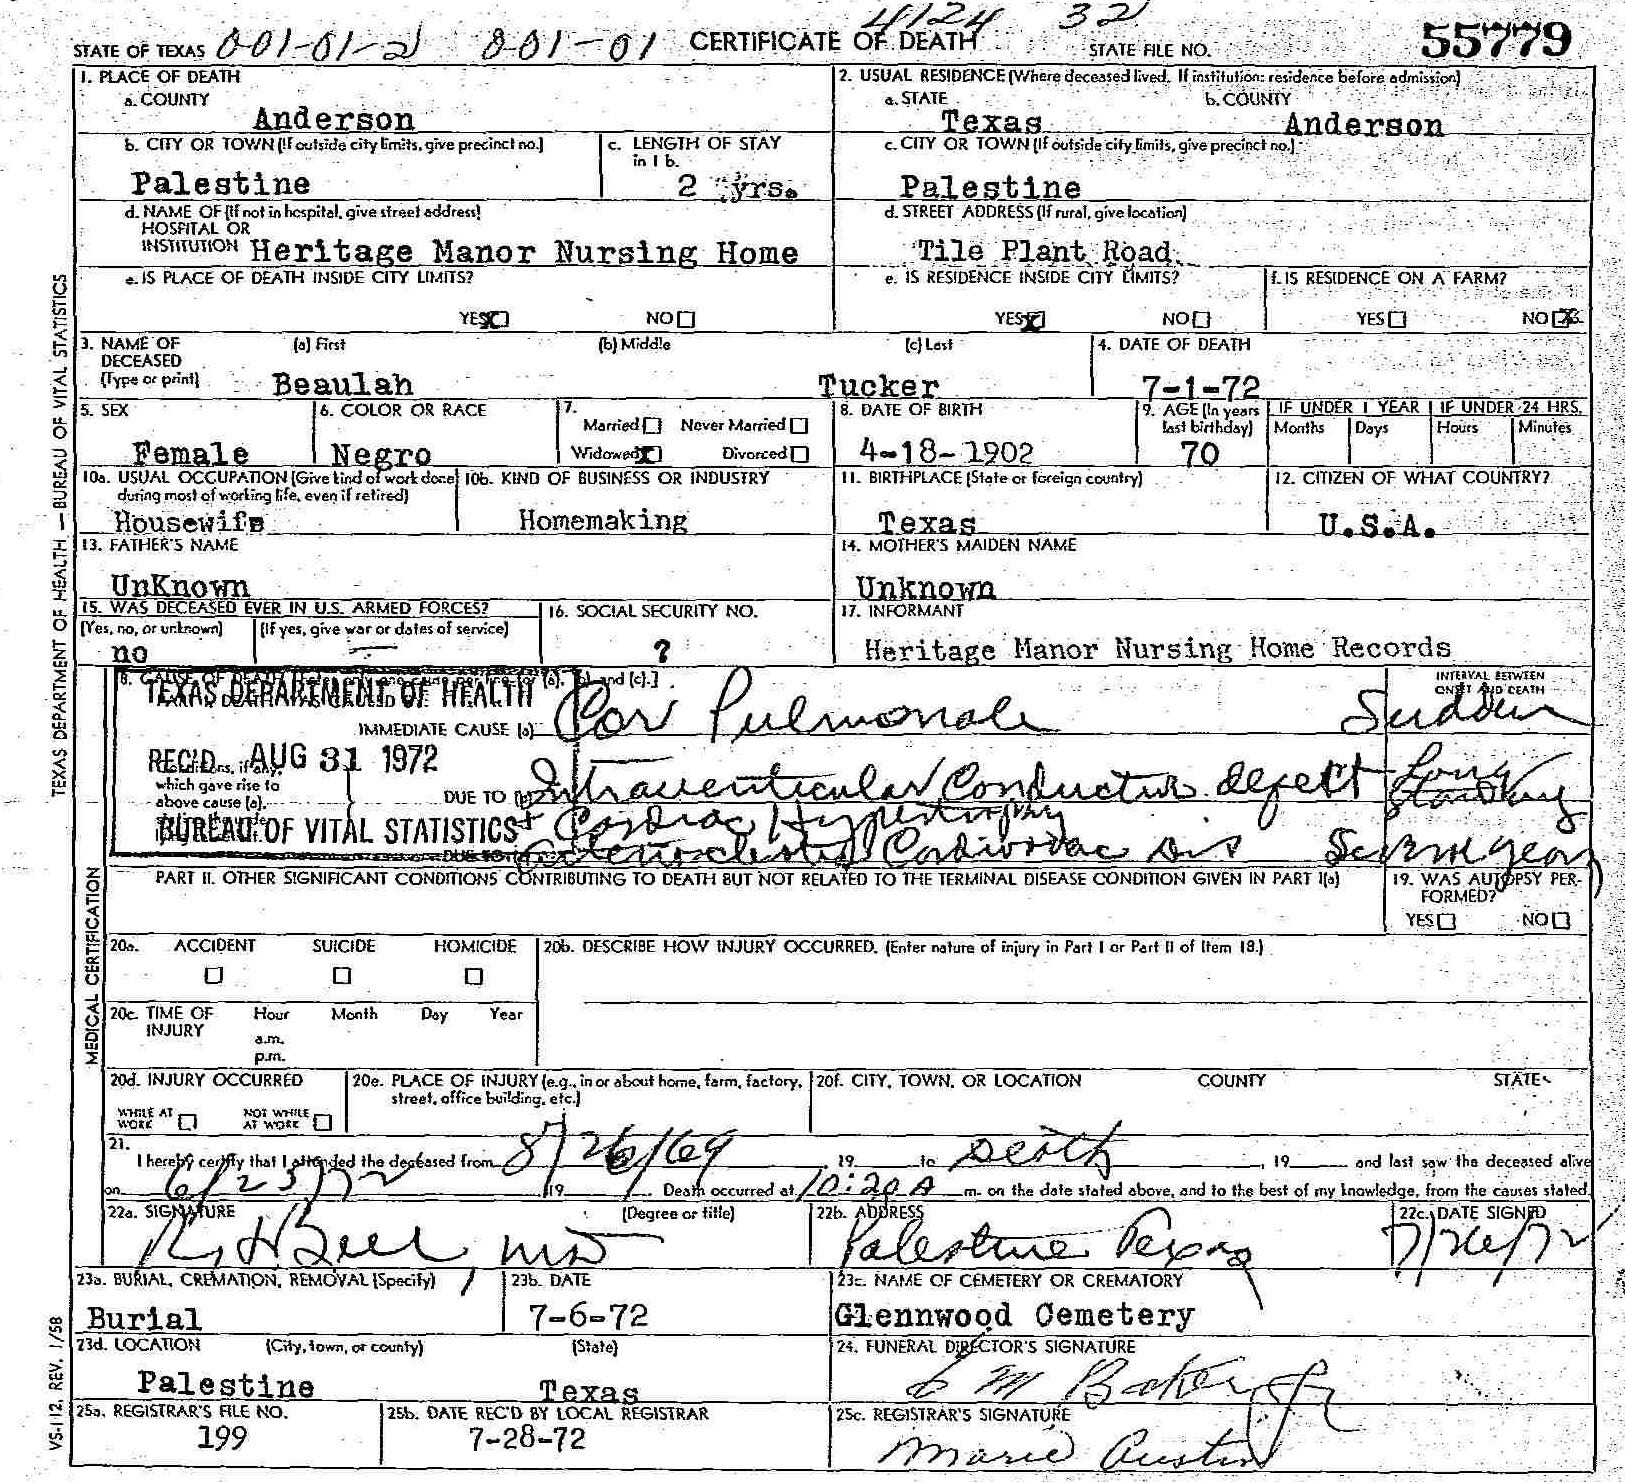 4124 32
STATE OF TEXAS 001-01-2 001-01 CERTIFICATE OF DEATH STATE FILE NO. 55779
1. PLACE OF DEATH
a. COUNTY
Anderson
2. USUAL RESIDENCE (Where deceased lived. If institution: residence before admission)
a. STATE b. COUNTY
Texas Anderson
b. CITY OR TOWN (If outside city limits, give precinct no.) c. LENGTH OF STAY in 1 b.
Palestine 2 yrs.
c. CITY OR TOWN (If outside city limits, give precinct no.)
Palestine
d. NAME OF (If not in hospital, give street address)
HOSPITAL OR
INSTITUTION Heritage Manor Nursing Home
d. STREET ADDRESS (If rural, give location)
Tile Plant Road
e. IS PLACE OF DEATH INSIDE CITY LIMITS?
YES NO
e. IS RESIDENCE INSIDE CITY LIMITS? f. IS RESIDENCE ON A FARM?
YES NO YES NO
3. NAME OF DECEASED (Type or print) (a) First (b) Middle (c) Last 4. DATE OF DEATH
Beaulah Tucker 7-1-72
5. SEX 6. COLOR OR RACE 7. Married Never Married Widowed Divorced
Female Negro
8. DATE OF BIRTH 9. AGE (In years last birthday) IF UNDER 1 YEAR IF UNDER 24 HRS.
Months Days Hours Minutes
4-18-1902 70
10a. USUAL OCCUPATION (Give kind of work done during most of working life, even if retired) 10b. KIND OF BUSINESS OR INDUSTRY
Housewife Homemaking
11. BIRTHPLACE (State or foreign country) 12. CITIZEN OF WHAT COUNTRY?
Texas U.S.A.
13. FATHER'S NAME 14. MOTHER'S MAIDEN NAME
UnKnown Unknown
15. WAS DECEASED EVER IN U.S. ARMED FORCES? 16. SOCIAL SECURITY NO. 17. INFORMANT
(Yes, no, or unknown) (If yes, give war or dates of service)
no — ? Heritage Manor Nursing Home Records
TEXAS DEPARTMENT OF HEALTH
REC'D AUG 31 1972
BUREAU OF VITAL STATISTICS
and (c).]
INTERVAL BETWEEN ONSET AND DEATH
IMMEDIATE CAUSE (a) Cor Pulmonale Sudden
Conditions, if any,
which gave rise to
above cause (a),
DUE TO (b) Intraventicular Conduction defect Long Standing
+ Cardiac Hypertrophy
DUE TO Cardiovasc Dis
PART II. OTHER SIGNIFICANT CONDITIONS CONTRIBUTING TO DEATH BUT NOT RELATED TO THE TERMINAL DISEASE CONDITION GIVEN IN PART I(a)
19. WAS AUTOPSY PERFORMED?
YES NO
20a. ACCIDENT SUICIDE HOMICIDE
20b. DESCRIBE HOW INJURY OCCURRED. (Enter nature of injury in Part I or Part II of Item 18.)
20c. TIME OF INJURY Hour Month Day Year
a.m.
p.m.
20d. INJURY OCCURRED
WHILE AT WORK NOT WHILE AT WORK
20e. PLACE OF INJURY (e.g., in or about home, farm, factory, street, office building, etc.)
20f. CITY, TOWN, OR LOCATION COUNTY STATE
21.
I hereby certify that I attended the deceased from 8/26/69 , 19 to Death , 19 and last saw the deceased alive
on 6/23/72 19 . Death occurred at 10:20 A m. on the date stated above, and to the best of my knowledge, from the causes stated.
22a. SIGNATURE (Degree or title) 22b. ADDRESS 22c. DATE SIGNED
R H Bell MD Palestine Texas 7/26/72
23a. BURIAL, CREMATION, REMOVAL (Specify) 23b. DATE 23c. NAME OF CEMETERY OR CREMATORY
Burial 7-6-72 Glennwood Cemetery
23d. LOCATION (City, town, or county) (State) 24. FUNERAL DIRECTOR'S SIGNATURE
Palestine Texas E M Baker Jr
25a. REGISTRAR'S FILE NO. 25b. DATE REC'D BY LOCAL REGISTRAR 25c. REGISTRAR'S SIGNATURE
199 7-28-72 Marie Austin
TEXAS DEPARTMENT OF HEALTH — BUREAU OF VITAL STATISTICS
MEDICAL CERTIFICATION
VS-112, REV. 1/58